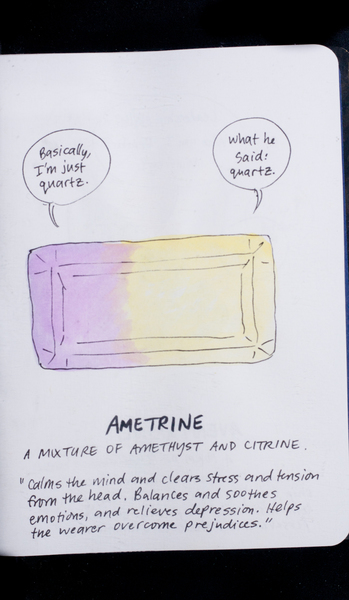 Basically,
I'm just
quartz.
What he
said:
quartz.
AMETRINE
A MIXTURE OF AMETHYST AND CITRINE.
"Calms the mind and clears stress and tension
from the head. Balances and soothes
emotions, and relieves depression. Helps
the wearer overcome prejudices."